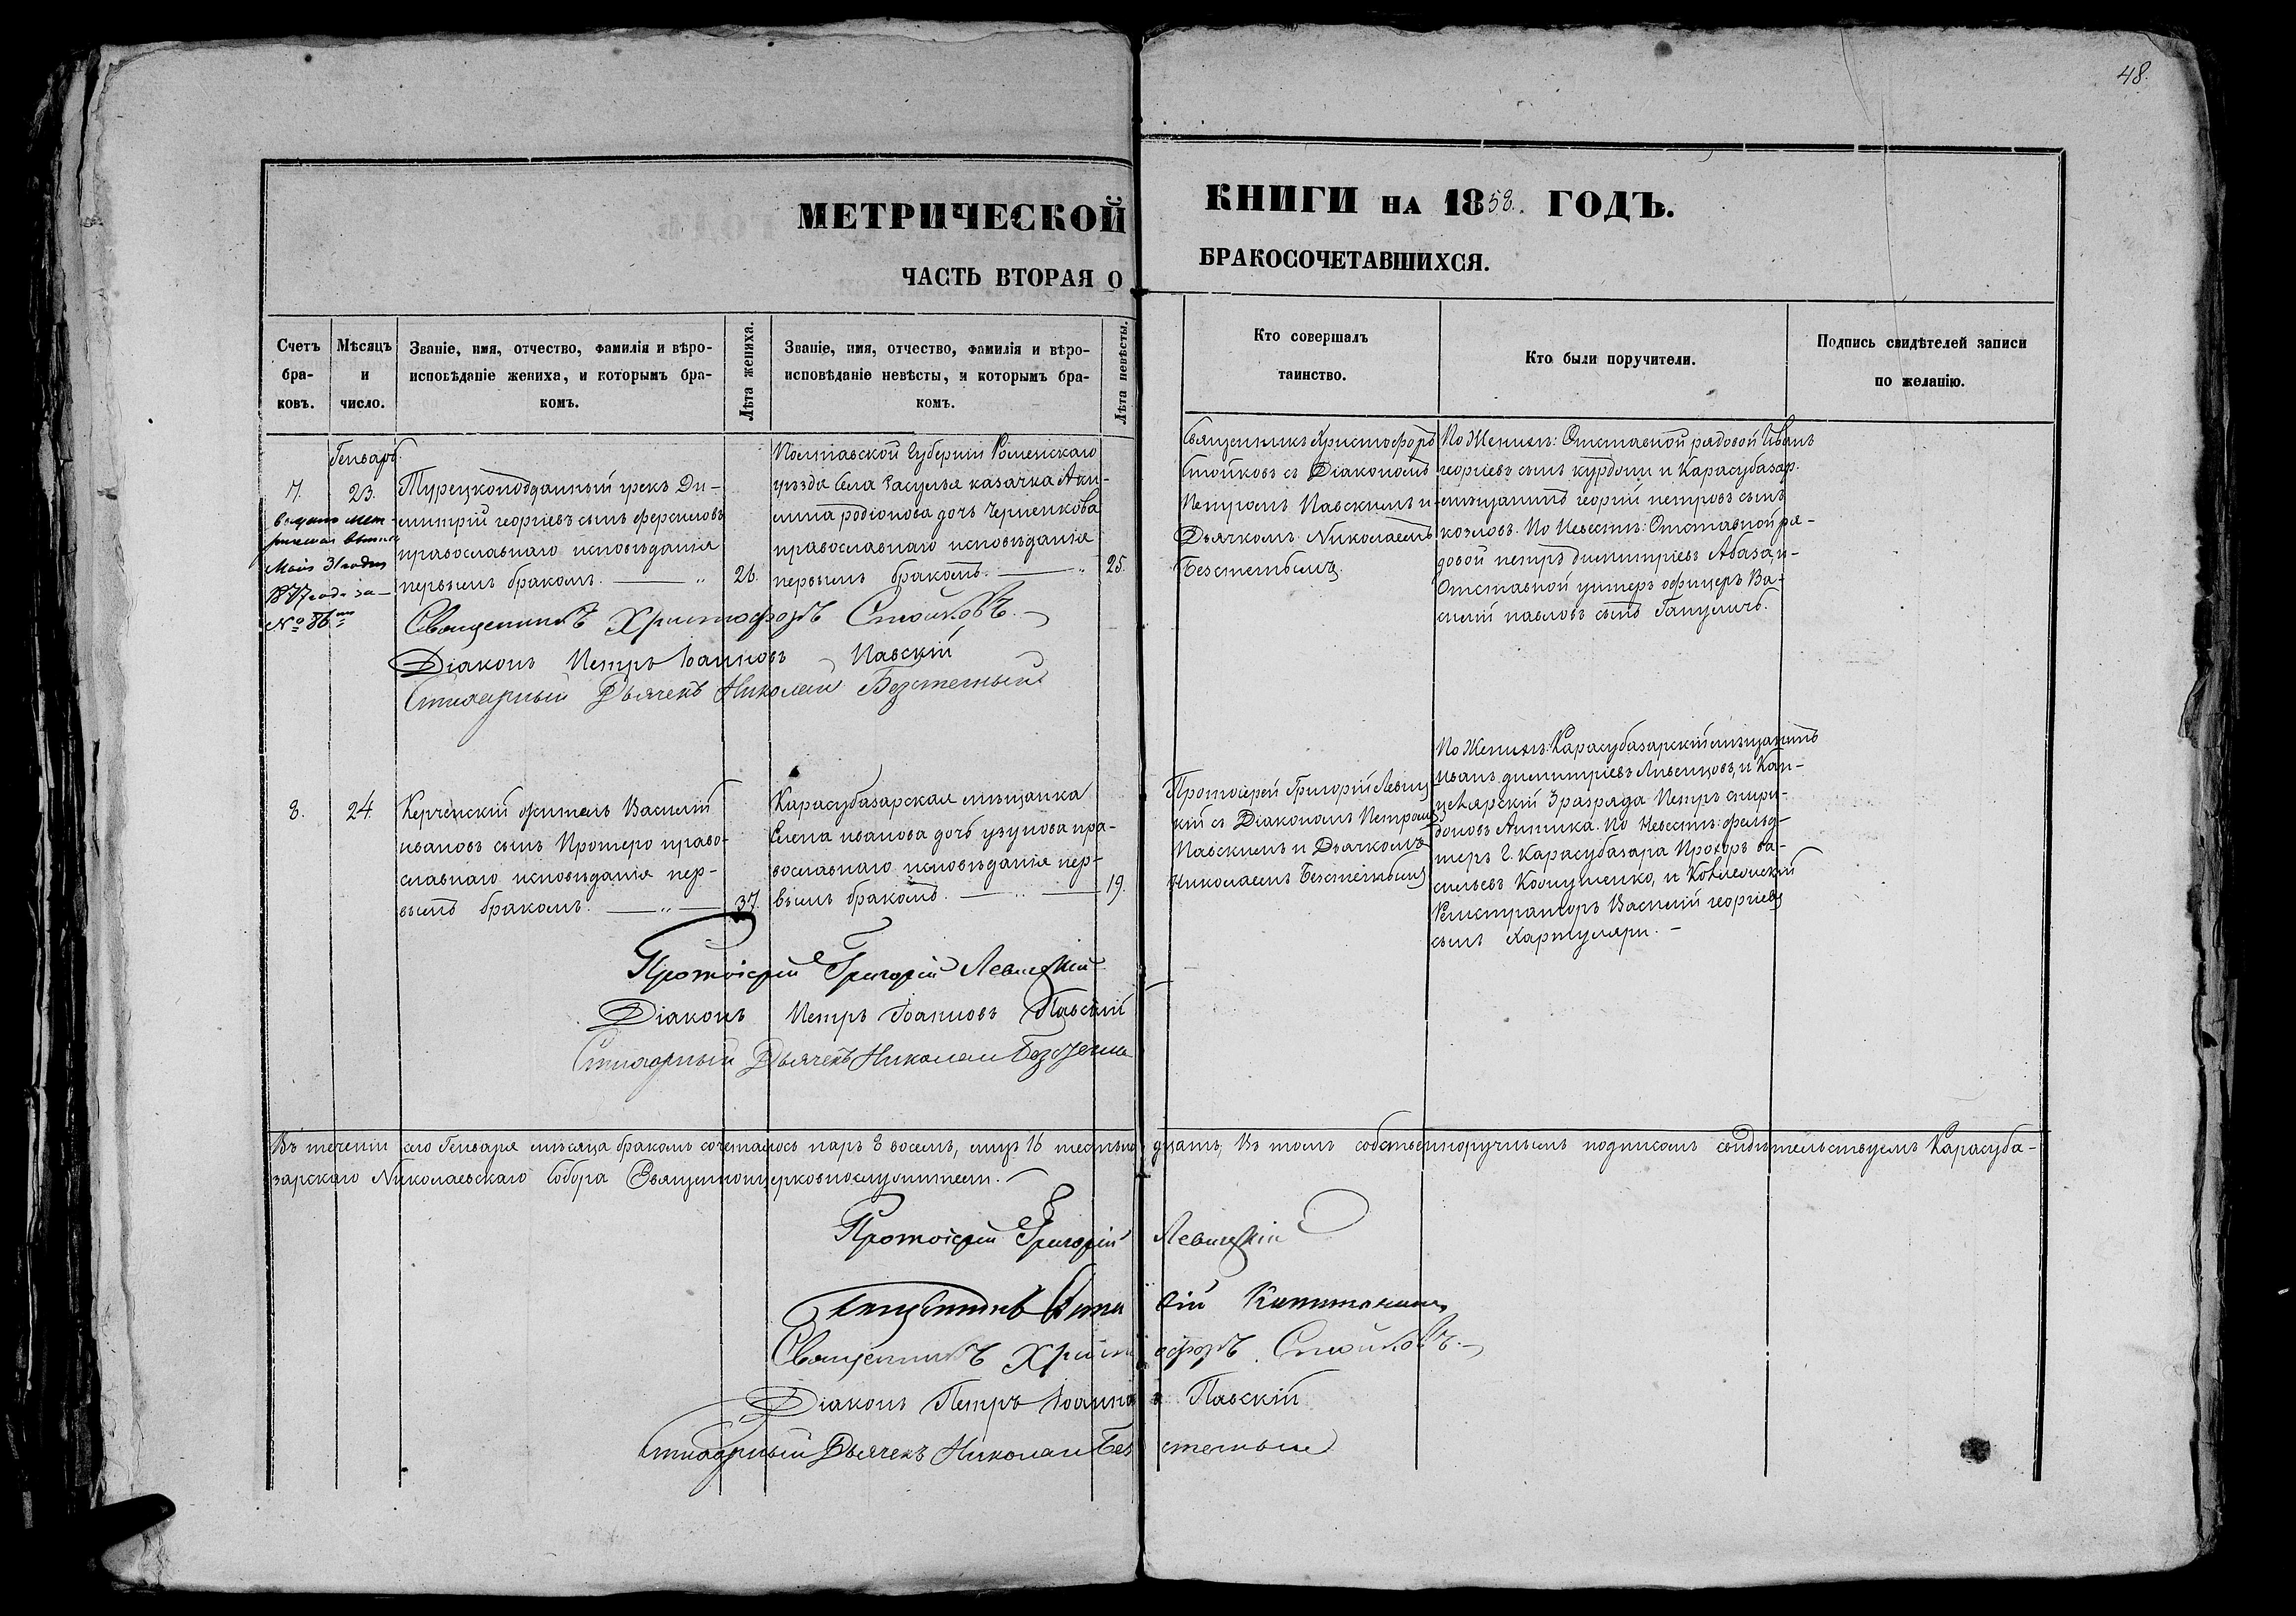 48.
МЕТРИЧЕСКОЙ КНИГИ НА 1858. ГОДЪ.
ЧАСТЬ ВТОРАЯ О БРАКОСОЧЕТАВШИХСЯ.
Счетъ бра-
ковъ.
Мѣсяцъ
и
число.
Званіе, имя, отчество, фамилія и вѣро-
исповѣданіе жениха, и которымъ бра-
комъ.
Лѣта жениха.
Званіе, имя, отчество, фамилія и вѣро-
исповѣданіе невѣсты, и которымъ бра-
комъ.
Лѣта невѣсты.
Кто совершалъ
таинство.
Кто были поручители.
Подпись свидѣтелей записи
по желанію.
7.
Мая 31 
1877 года за
№ 86
Генварь.
23.
Турецкоподданный грекъ Ди-
митрій георгіевъ сынъ
православнаго исповѣданія
первымъ бракомъ. — „
26.
Полтавской Губерніи Роменскаго
уѣзда села Засулья казачка Аки-
лина родіонова дочь Черненкова
православнаго исповѣданія
первымъ бракомъ. — „
25.
Священникъ Христофоръ
Стойковъ съ Діакономъ
Петромъ Павскимъ и
Дьячкомъ Николаемъ
По Женихѣ: Отставной рядовой Иванъ
георгіевъ сынъ курдони и Карасубазар.
мѣщанинъ георгій петровъ сынъ
козловъ. По Невѣстѣ: Отставной ря-
довой петръ димитріевъ Абаза, и
Отставной унтеръ офицеръ Ва-
силій павловъ сынъ
Священникъ Христофоръ Стойковъ.
Діаконъ Петръ Іоанновъ Павскій
Стихарный Дьячекъ Николай
8.
24.
Керченскій житель Василій
ивановъ сынъ Протеро право-
славнаго исповѣданія пер-
вымъ бракомъ. — „ —
37.
Карасубазарская мѣщанка
Елена иванова дочь узунова пра-
вославнаго исповѣданія пер-
вымъ бракомъ. — „ —
19.
Протоіерей Григорій Левиц-
кій съ Діакономъ Петромъ
Павскимъ и Дьячкомъ
Николаемъ
По Женихѣ: Карасубазарскій мѣщанинъ
иванъ димитріевъ и Кан-
целярскій 3 разряда Петръ спири-
доновъ По Невѣстѣ: фельд-
шеръ г. Карасубазара Прохоръ ва-
сильевъ и Коллежскій
Регистраторъ Василій георгіевъ
сынъ Хартуляри. —
Протоіерей Григорій Левицкій
Діаконъ Петръ Іоанновъ Павскій
Стихарный Дьячекъ Николай
Въ теченіи сего Генваря мѣсяца бракомъ сочеталось паръ 8 восемь, лицъ 16 шестьнадцать, Въ томъ собственноручнымъ подписомъ свидѣтельствуемъ Карасуба-
зарскаго Николаевскаго Собора Священноцерковнослужители.
Протоіерей Григорій Левицкій
Священникъ
Священникъ Христофоръ Стойковъ.
Діаконъ Петръ Іоанновъ Павскій
Стихарный Дьячекъ Николай